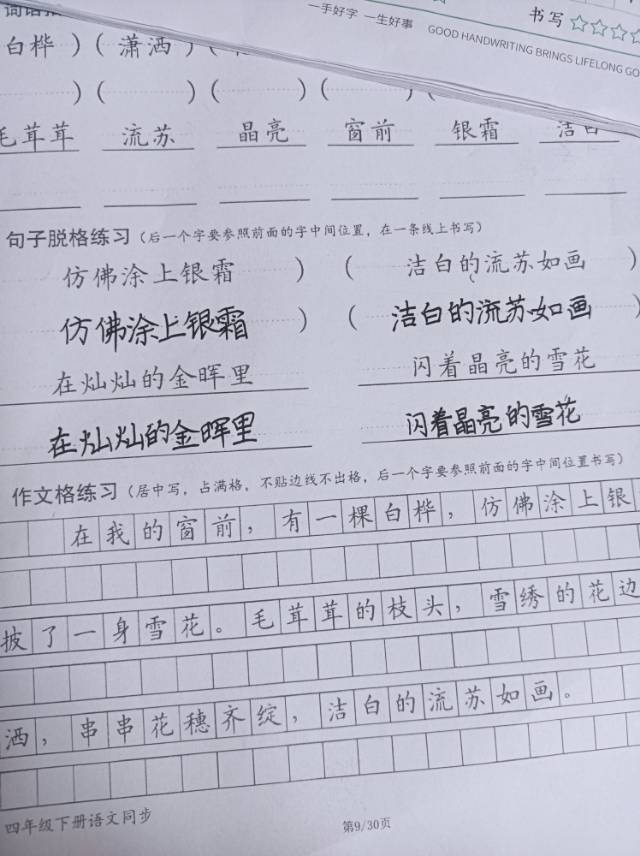 一手好字 一生好事
书写☆☆☆☆
GOOD HANDWRITING BRINGS LIFELONG GO
白桦 ) ( 潇洒 ) (
) ( ) ( ) ( ) (
毛茸茸 流苏 晶亮 窗前 银霜 洁白
句子脱格练习（后一个字要参照前面的字中间位置，在一条线上书写）
仿佛涂上银霜 ) ( 洁白的流苏如画 )
仿佛涂上银霜 ) ( 洁白的流苏如画 )
在灿灿的金晖里 闪着晶亮的雪花
在灿灿的金晖里 闪着晶亮的雪花
作文格练习（居中写，占满格，不贴边线不出格，后一个字要参照前面的字中间位置书写）
在我的窗前，有一棵白桦，仿佛涂上银
披了一身雪花。毛茸茸的枝头，雪绣的花边
洒，串串花穗齐绽，洁白的流苏如画。
四年级下册语文同步
第9/30页